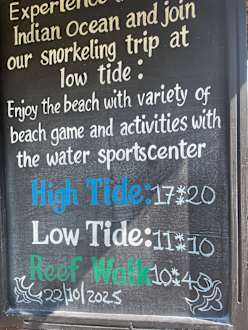 Experience
Indian Ocean and join
our snorkeling trip at
low tide:
Enjoy the beach with variety of
beach game and activities with
the water sportscenter
High Tide:17:20
Low Tide:11:10
Reef Walk 10:40
22/10/2025